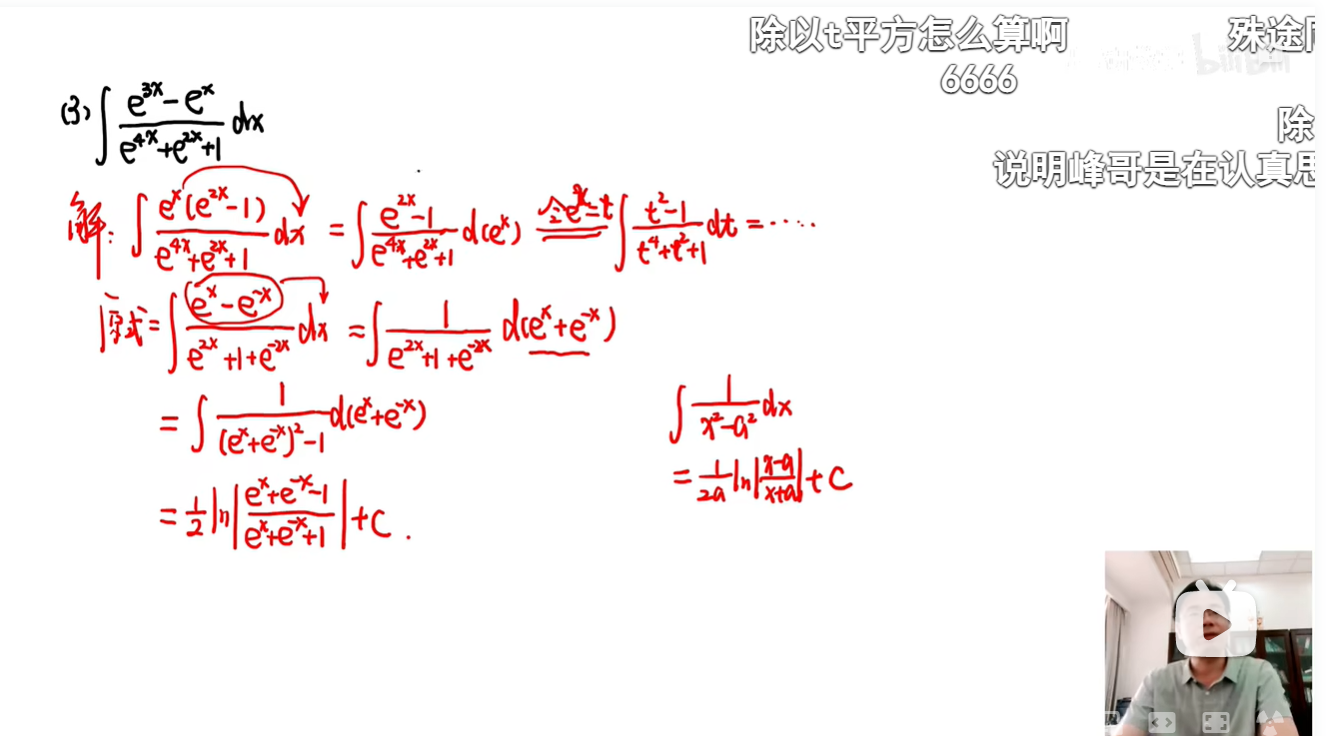 除以t平方怎么算啊
殊途
6666
bilibili
除
说明峰哥是在认真思
(3) ∫ (e^{3x} - e^x)/(e^{4x} + e^{2x} + 1) dx
解: ∫ e^x(e^{2x} - 1)/(e^{4x} + e^{2x} + 1) dx = ∫ (e^{2x} - 1)/(e^{4x} + e^{2x} + 1) d(e^x) 令e^x=t ∫ (t^2 - 1)/(t^4 + t^2 + 1) dt = ......
原式 = ∫ (e^x - e^{-x})/(e^{2x} + 1 + e^{-2x}) dx = ∫ 1/(e^{2x} + 1 + e^{-2x}) d(e^x + e^{-x})
= ∫ 1/((e^x + e^{-x})^2 - 1) d(e^x + e^{-x})
= 1/2 ln|(e^x + e^{-x} - 1)/(e^x + e^{-x} + 1)| + C.
∫ 1/(x^2 - a^2) dx
= 1/(2a) ln|(x - a)/(x + a)| + C